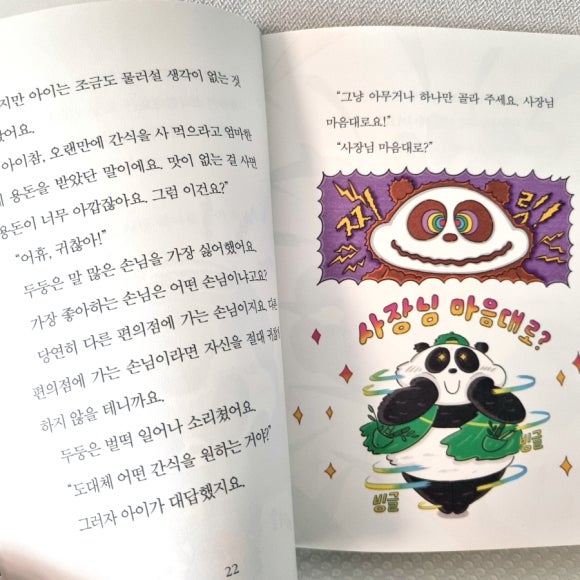 지만 아이는 조금도 물러설 생각이 없는 것
았어요.
아이참, 오랜만에 간식을 사 먹으라고 엄마한
용돈을 받았단 말이에요. 맛이 없는 걸 사면
용돈이 너무 아깝잖아요. 그럼 이건요?”
“어휴, 귀찮아!”
두둥은 말 많은 손님을 가장 싫어했어요.
가장 좋아하는 손님은 어떤 손님이냐고요?
당연히 다른 편의점에 가는 손님이지요. 다른
편의점에 가는 손님이라면 자신을 절대 귀찮게
하지 않을 테니까요.
두둥은 벌떡 일어나 소리쳤어요.
“도대체 어떤 간식을 원하는 거야?”
그러자 아이가 대답했지요.
22
“그냥 아무거나 하나만 골라 주세요. 사장님
마음대로요!”
“사장님 마음대로?”
찌릿!
사장님 마음대로?
빙글
빙글